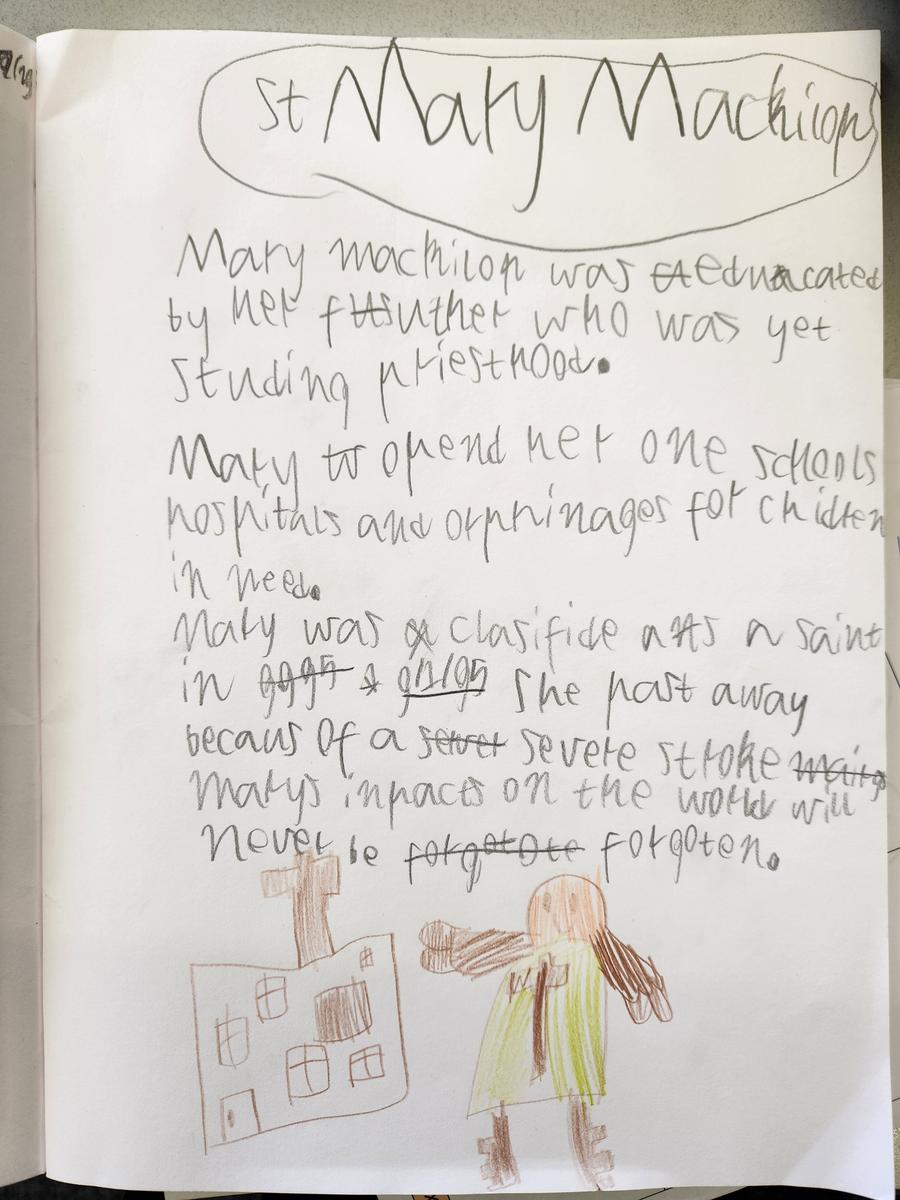 St Mary Mackilop
Mary mackilop was educated
by her futher who was yet
studing priesthood.
Mary opend her one schools
hospitals and orphinages for children
in need.
Mary was clasifide as a saint
in 9/1/95 she past away
becaus of a severe stroke
Marys inpacts on the world will
never be forgoten.